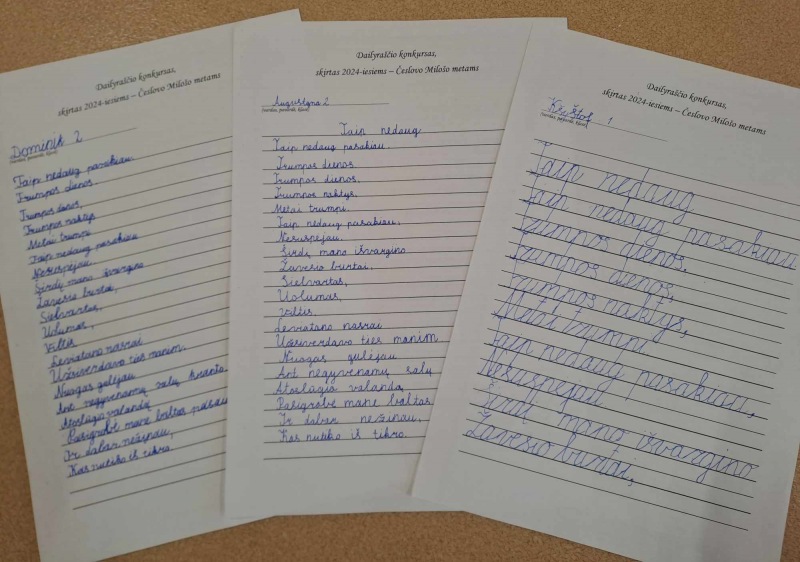 Dailyraščio konkursas,
skirtas 2024-iesiems – Česlovo Milošo metams
Dominik 2
(vardas, pavardė, klasė)
Taip nedaug pasakiau.
Trumpos dienos.
Trumpos dienos,
Trumpos naktys
Metai trumpi
Taip nedaug pasakiau
Nesuspėjau.
Širdį mano išvargino
Žavesio
Sielvartas,
Uolumas,
Viltis
Leviatano nasrai
Užsiverdavo ties manim.
Nuogas gulėjau
Ant negyvenamų salų kranto
Atoslūgio valandą
Pasigrobė mane baltas
Ir dabar nežinau,
Kas nutiko iš tikro.
Dailyraščio konkursas,
skirtas 2024-iesiems – Česlovo Milošo metams
Augustyna 2
(vardas, pavardė, klasė)
Taip nedaug
Taip nedaug pasakiau.
Trumpos dienos.
Trumpos dienos,
Trumpos naktys.
Metai trumpi.
Taip nedaug pasakiau.
Nesuspėjau.
Širdį mano išvargino
Žavesio burtai,
Sielvartas,
Uolumas,
Viltis.
Leviatano nasrai
Užsiverdavo ties manim
Nuogas gulėjau
Ant negyvenamų salų
Atoslūgio valandą,
Pasigrobė mane baltas
Ir dabar nežinau,
Kas nutiko iš tikro.
Dailyraščio konkursas,
skirtas 2024-iesiems – Česlovo Milošo metams
Krištof 1
(vardas, pavardė, klasė)
Taip nedaug
Taip nedaug pasakiau
Trumpos dienos.
Trumpos dienos,
Trumpos naktys,
Metai trumpi
Taip nedaug pasakiau,
Nesuspėjau
Širdį mano išvargino
Žavesio burtai,